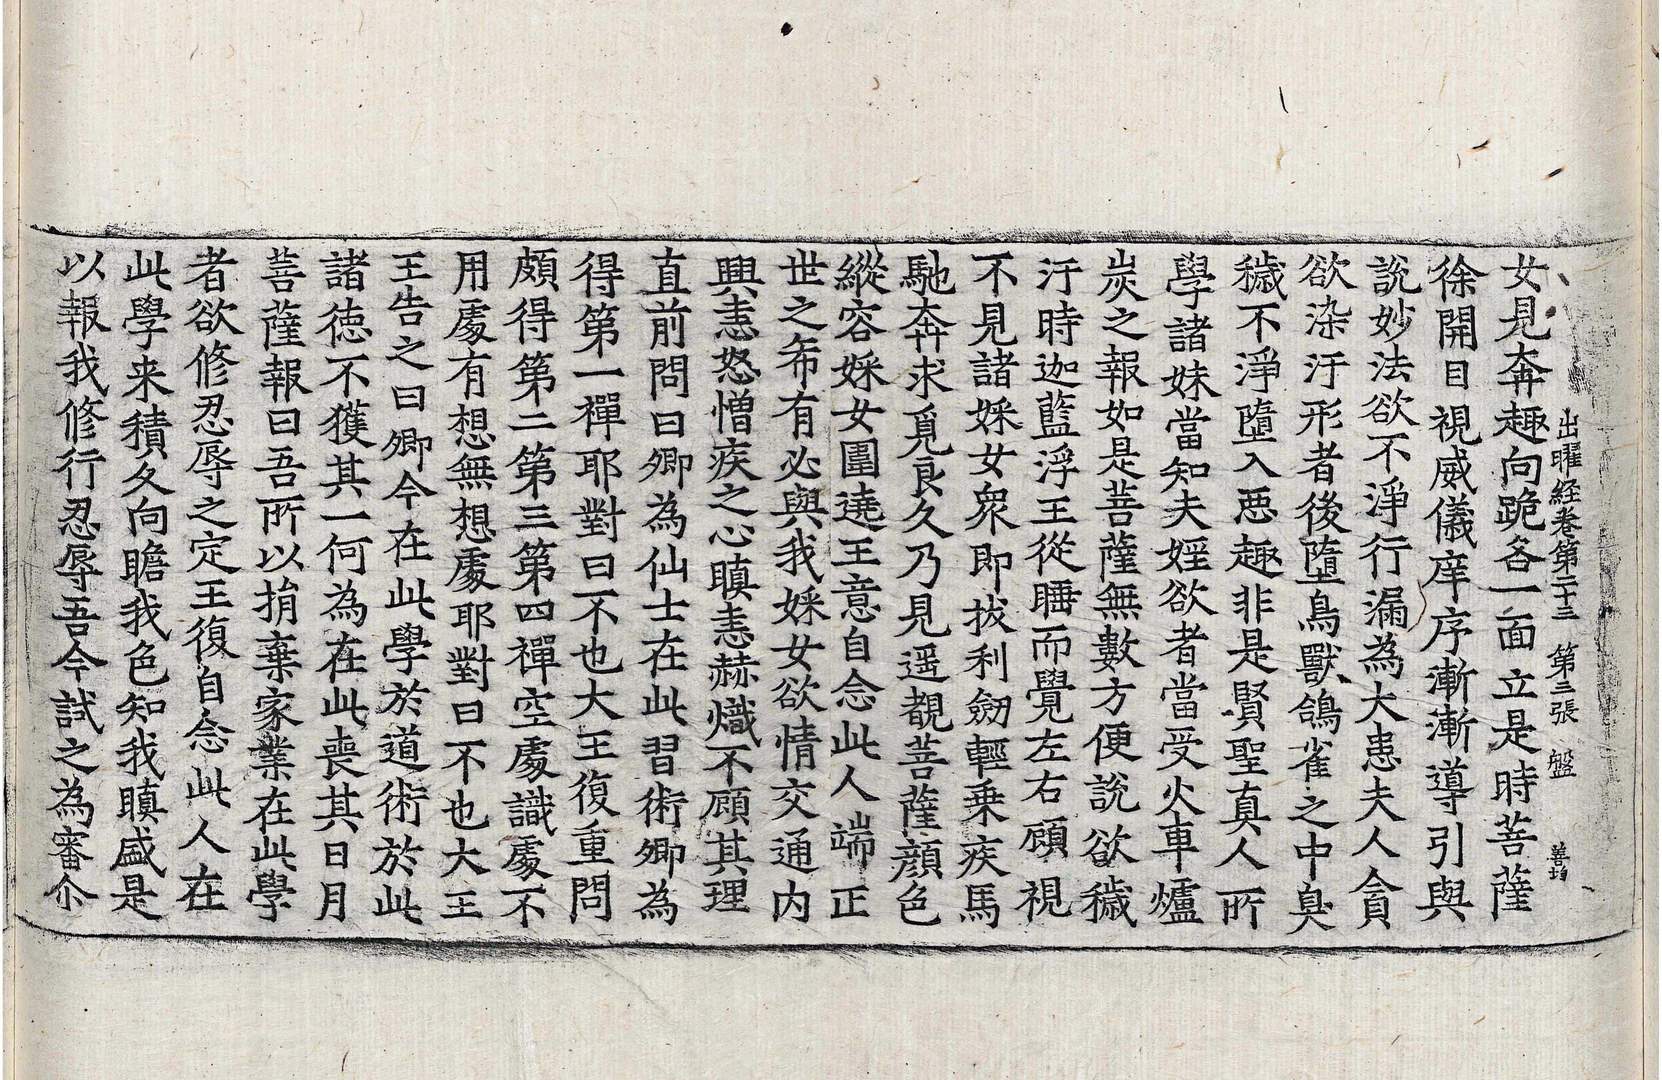 出曜経卷第二十三　第三張　盤　善均
女見奔趣向跪各一面立是時菩薩
徐開目視威儀庠序漸漸導引與
說妙法欲不淨行漏為大患夫人貪
欲染汙形者後墮鳥獸鴿雀之中臭
穢不淨墮入惡趣非是賢聖真人所
學諸妹當知夫婬欲者當受火車爐
炭之報如是菩薩無數方便說欲穢
汙時迦藍浮王從睡而覺左右顧視
不見諸婇女衆即拔利劒輕乗疾馬
馳奔求覓良久乃見遥覩菩薩顔色
縱容婇女圍遶王意自念此人端正
世之希有必與我婇女欲情交通內
興恚怒憎疾之心瞋恚赫熾不顧其理
直前問曰卿為仙士在此習術卿為
得第一禪耶對曰不也大王復重問
頗得第二第三第四禪空處識處不
用處有想無想處耶對曰不也大王
王告之曰卿今在此學於道術於此
諸徳不獲其一何為在此喪其日月
菩薩報曰吾所以捐棄家業在此學
者欲修忍辱之定王復自念此人在
此學来積久向瞻我色知我瞋盛是
以報我修行忍辱吾今試之為審尒